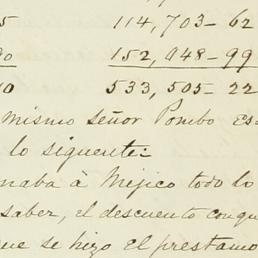 5 114,703–62
90 152,948–99
10 533,505–22
mismo señor Pombo es-
lo siguiente:
naba á Mejico todo lo
saber, el descuento con que
que se hizo el prestamo